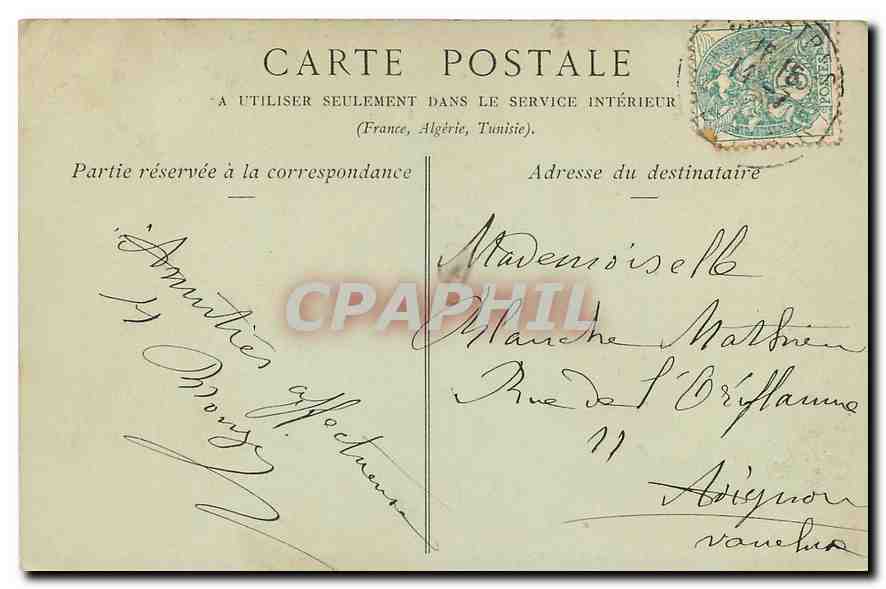 CARTE POSTALE
A UTILISER SEULEMENT DANS LE SERVICE INTÉRIEUR
(France, Algérie, Tunisie).
Partie réservée à la correspondance
Amitiés affectueuses
Adresse du destinataire
Mademoiselle
Blanche Mathieu
Rue de l'Oriflamme
11
Avignon
Vaucluse
POSTES
CPAPHIL